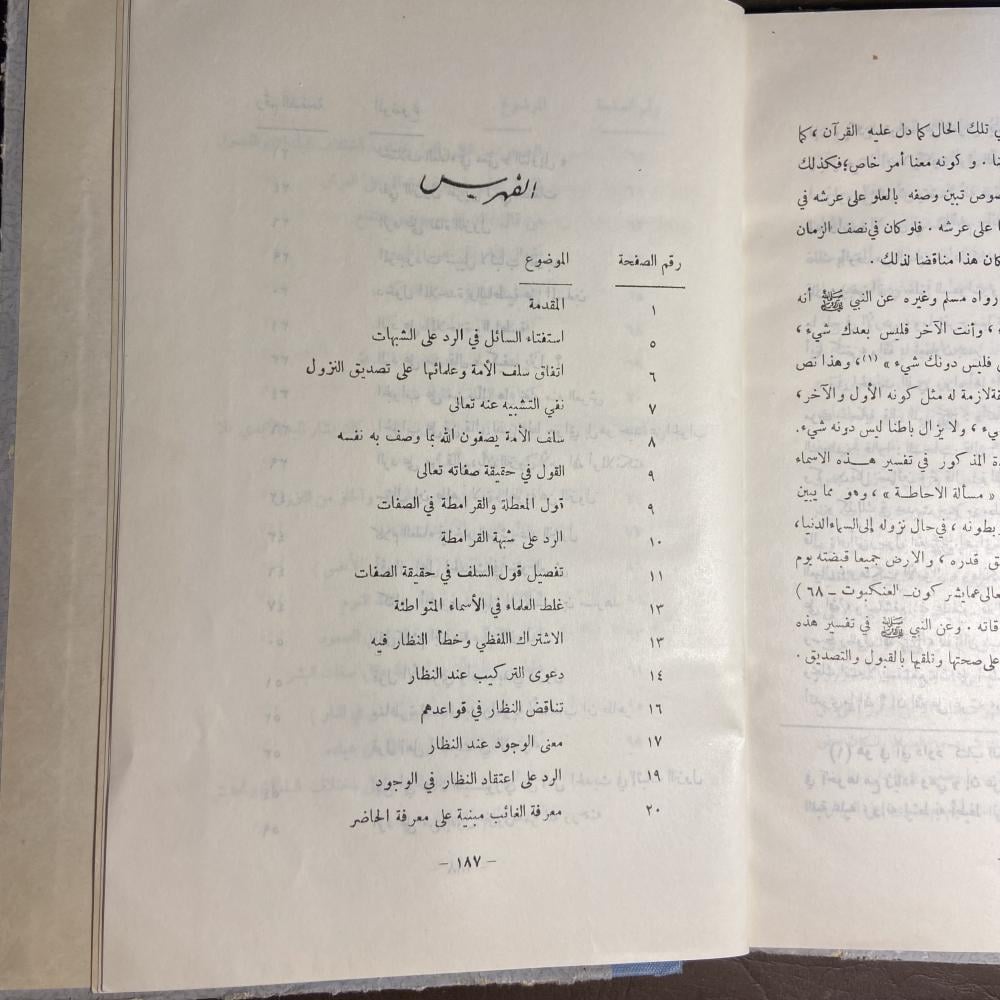 ي تلك الحال كما دل عليه القرآن ، كما
نا . و كونه معنا أمر خاص ؛ فكذلك
صوص تبين وصفه بالعلو على عرشه في
ا على عرشه . فلو كان في نصف الزمان
كان هذا مناقضا لذلك .
رواه مسلم وغيره عن النبي ﷺ أنه
، وأنت الآخر فليس بعدك شيء ،
فليس دونك شيء » (١) ، وهذا نص
لازمة له مثل كونه الأول والآخر ،
يء ، ولا يزال باطنا ليس دونه شيء .
المذكور في تفسير هذه الاسماء
« مسألة الاحاطة » ، وهو مما يبين
بطونه ، في حال نزوله إلى السماء الدنيا ،
ق قدره ، والارض جميعا قبضته يوم
تعالى عما يشركون ـ العنكبوت ـ ٦٨ )
قاته . وعن النبي ﷺ في تفسير هذه
على صحتها وتلقيها بالقبول والتصديق .
الفهرس
رقم الصفحة الموضوع
١ المقدمة
٥ استفتاء السائل في الرد على الشبهات
٦ اتفاق سلف الأمة وعلمائها على تصديق النزول
٧ نفي التشبيه عنه تعالى
٨ سلف الأمة يصفون الله بما وصف به نفسه
٩ القول في حقيقة صفاته تعالى
٩ قول المعطلة والقرامطة في الصفات
١٠ الرد على شبهة القرامطة
١١ تفصيل قول السلف في حقيقة الصفات
١٣ غلط العلماء في الأسماء المتواطئة
١٣ الاشتراك اللفظي وخطأ النظار فيه
١٤ دعوى التركيب عند النظار
١٦ تناقض النظار في قواعدهم
١٧ معنى الوجود عند النظار
١٩ الرد على اعتقاد النظار في الوجود
٢٠ معرفة الغائب مبنية على معرفة الحاضر
– ١٨٧ –